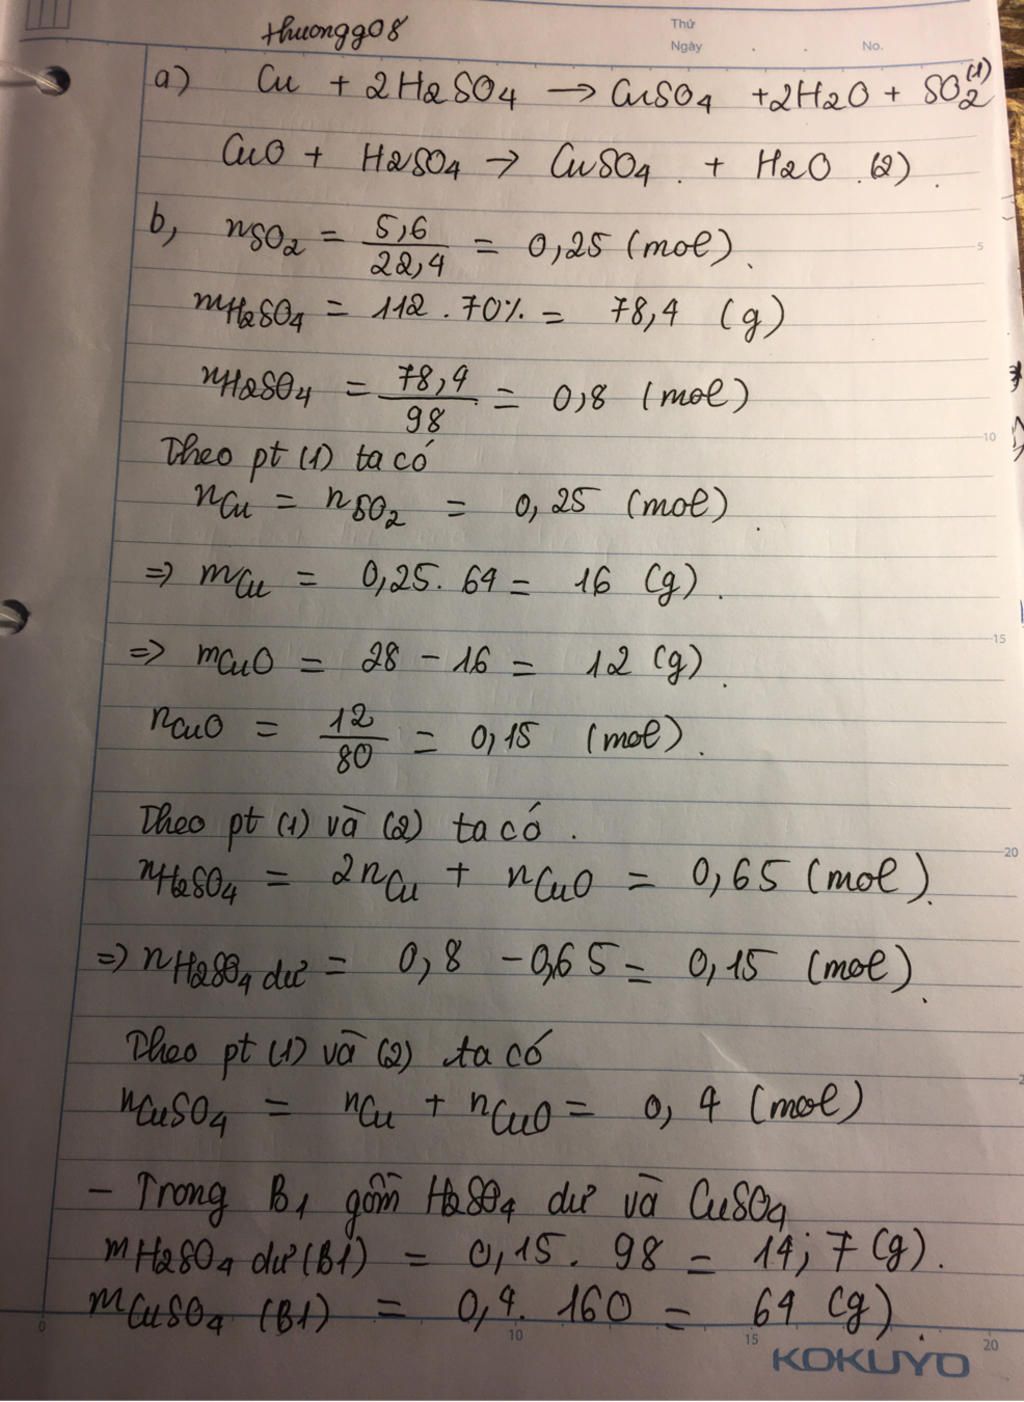 thuongg08
Thứ
Ngày . . No.
a) Cu + 2H2SO4 → CuSO4 + 2H2O + SO2 (1)
CuO + H2SO4 → CuSO4 . + H2O . (2) .
b, nSO2 = 5,6 / 22,4 = 0,25 (mol) .
5
mH2SO4 = 112 . 70% = 78,4 (g)
nH2SO4 = 78,4 / 98 = 0,8 (mol)
10
Theo pt (1) ta có
nCu = nSO2 = 0,25 (mol) .
=> mCu = 0,25. 64 = 16 (g) .
15
=> mCuO = 28 - 16 = 12 (g) .
nCuO = 12 / 80 = 0,15 (mol) .
Theo pt (1) và (2) ta có .
20
nH2SO4 = 2nCu + nCuO = 0,65 (mol) .
=> nH2SO4 dư = 0,8 - 0,65 = 0,15 (mol) .
Theo pt (1) và (2) ta có
nCuSO4 = nCu + nCuO = 0,4 (mol)
- Trong B1 gồm H2SO4 dư và CuSO4
mH2SO4 dư (B1) = 0,15. 98 = 14,7 (g).
mCuSO4 (B1) = 0,4. 160 = 64 (g) .
0 10 15 20
KOKUYO